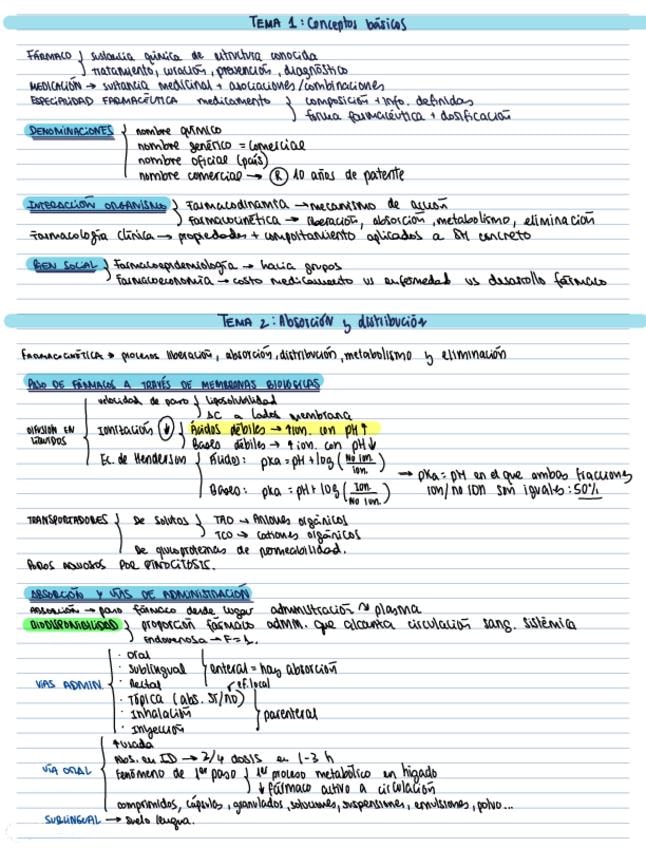 TEMA 1: Conceptos básicos
FÁRMACO } sustancia química de estructura conocida
tratamiento, curación, prevención, diagnóstico
MEDICACIÓN → sustancia medicinal + asociaciones/combinaciones
ESPECIALIDAD FARMACÉUTICA medicamento } composición + info. definidas
forma farmacéutica + dosificación
DENOMINACIONES { nombre químico
nombre genérico = comercial
nombre oficial (país)
nombre comercial → ® 10 años de patente
INTERACCIÓN ORGANISMO } Farmacodinamia → mecanismo de acción
Farmacocinética → liberación, absorción, metabolismo, eliminación
Farmacología clínica → propiedades + comportamiento aplicados a SH concreto
BIEN SOCIAL } Farmacoepidemiología → hacia grupos
Farmacoeconomía → costo medicamento vs enfermedad vs desarrollo fármaco
TEMA 2: Absorción y distribución
FARMACOCINÉTICA → procesos liberación, absorción, distribución, metabolismo y eliminación
PASO DE FÁRMACOS A TRAVÉS DE MEMBRANAS BIOLÓGICAS
velocidad de paso } liposolubilidad
ΔC a lados membrana
DIFUSIÓN EN LÍQUIDOS { Ionización ↓ } Ácidos débiles → ↑ion. con pH↑
Bases débiles → ↑ion. con pH↓
Ec. de Henderson { Ácidos: pKa = pH + log (No ion. / ion.)
Bases: pKa = pH + log (Ion. / No ion.)
→ pKa = pH en el que ambas fracciones
ion/no ion son iguales: 50%
TRANSPORTADORES } De solutos } TAO → Aniones orgánicos
TCO → cationes orgánicos
De glucoproteínas de permeabilidad.
POROS ACUOSOS POR PINOCITOSIS.
ABSORCIÓN Y VÍAS DE ADMINISTRACIÓN
ABSORCIÓN → paso fármaco desde lugar administración ~ plasma
BIODISPONIBILIDAD } proporción fármaco admm. que alcanza circulación sang. sistémica
Endovenosa → F = 1.
VÍAS ADMIN. { · Oral
· Sublingual } enteral = hay absorción
· Rectal
· Tópica (abs. SI/NO) ef. local
· Inhalación } parenteral
· Inyección
VÍA ORAL { +usada
Abs. en ID → 3/4 dosis en 1-3 h
Fenómeno de 1er paso } 1er proceso metabólico en hígado
↓ fármaco activo a circulación
comprimidos, cápsulas, granulados, soluciones, suspensiones, emulsiones, polvo...
SUBLINGUAL → suelo lengua.